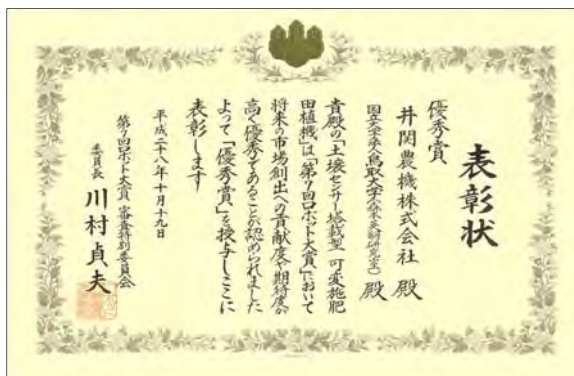 表彰状
優秀賞
井関農機株式会社 殿
国立大学法人鳥取大学(農学部 森本研究室) 殿
貴殿の「土壌センサー搭載型 可変施肥
田植機」は「第7回ロボット大賞」において
将来の市場創出への貢献度や期待度が
高く優秀であることが認められました
よって「優秀賞」を授与しここに
表彰します
平成二十八年十月十九日
第7回ロボット大賞 審査特別委員会
委員長 川村貞夫